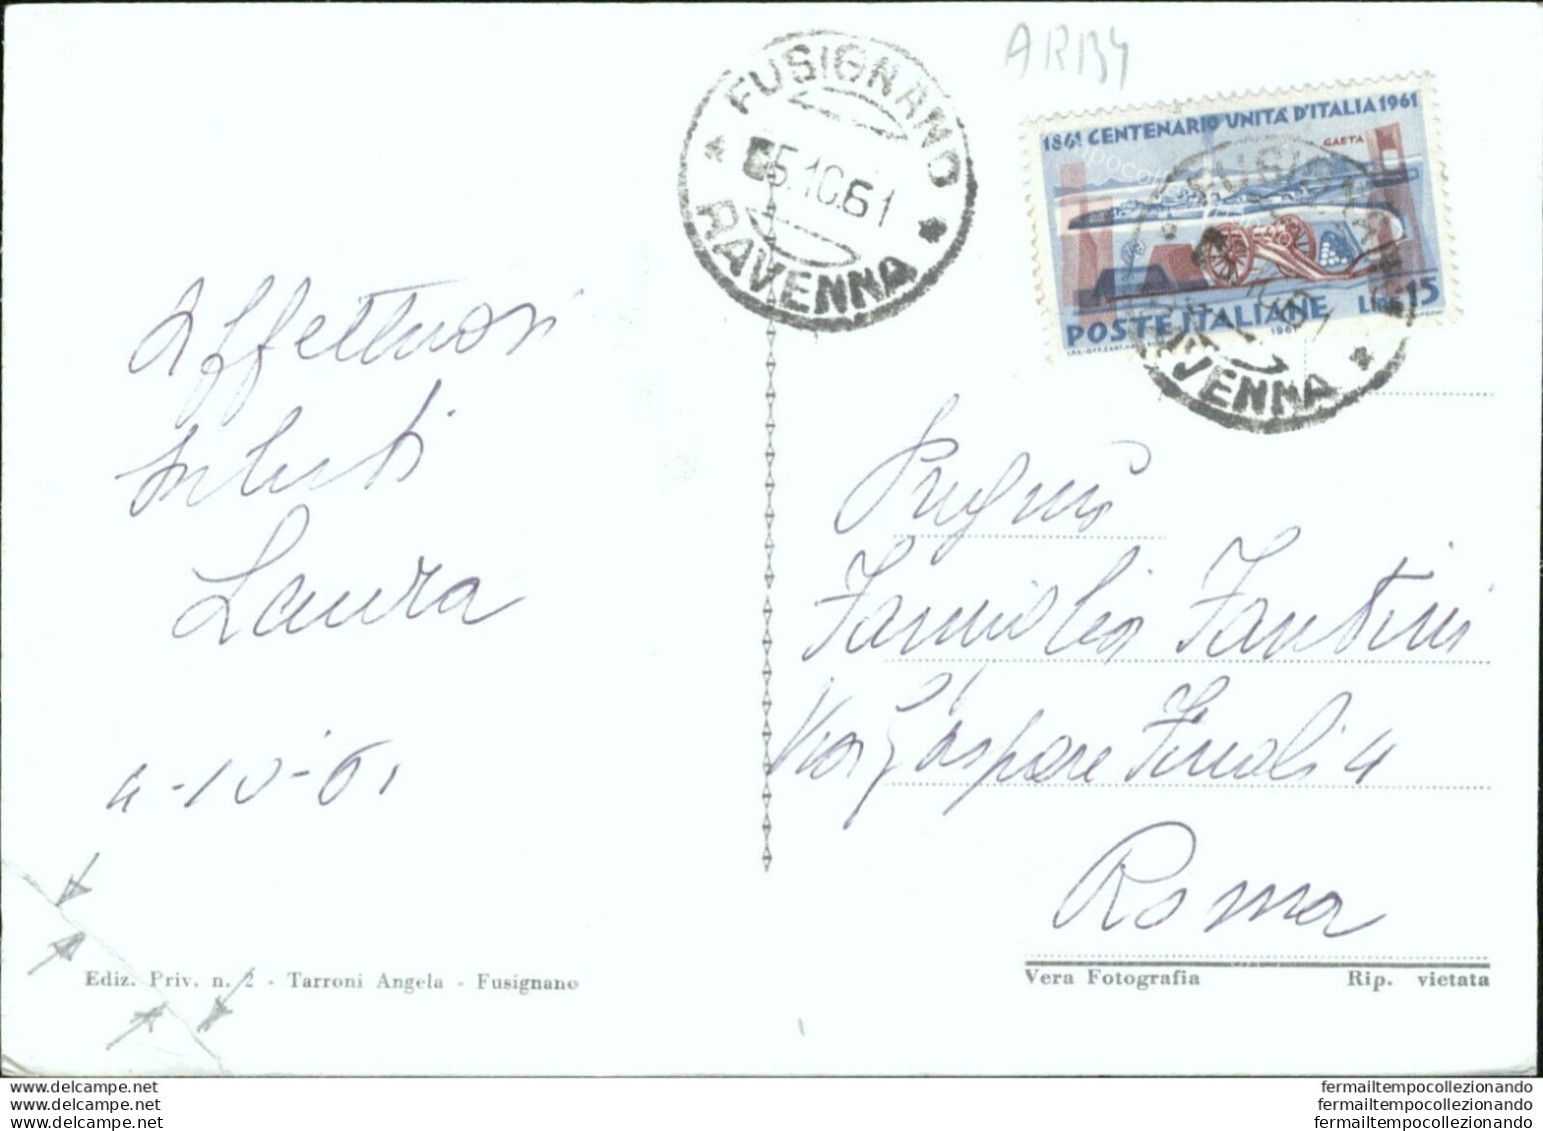 ARBY
FUSIGNANO
05.10.61
RAVENNA
1861 CENTENARIO UNITÀ D'ITALIA 1961
GAETA
POSTE ITALIANE LIRE 15
1961
Affettuosi
saluti
Laura
4-10-61
Famiglia Fantini
Via Gaspare
Roma
Ediz. Priv. n. 2 - Tarroni Angela - Fusignano
Vera Fotografia Rip. vietata
www.delcampe.net
www.delcampe.net
www.delcampe.net
fermailtempocollezionando
fermailtempocollezionando
fermailtempocollezionando